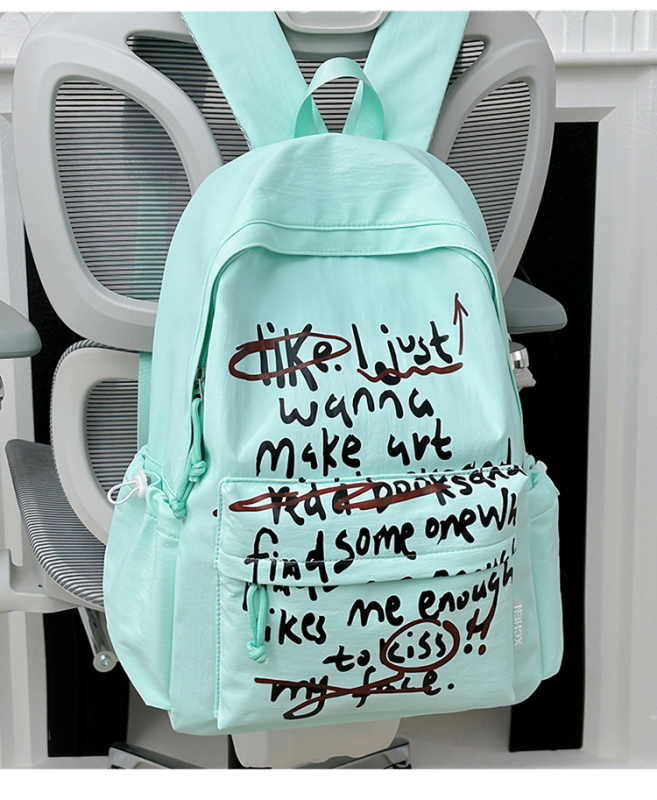 like. I just
wanna
make art
books and
find some one
likes me enough
to kiss!!
my face.
XCHEN